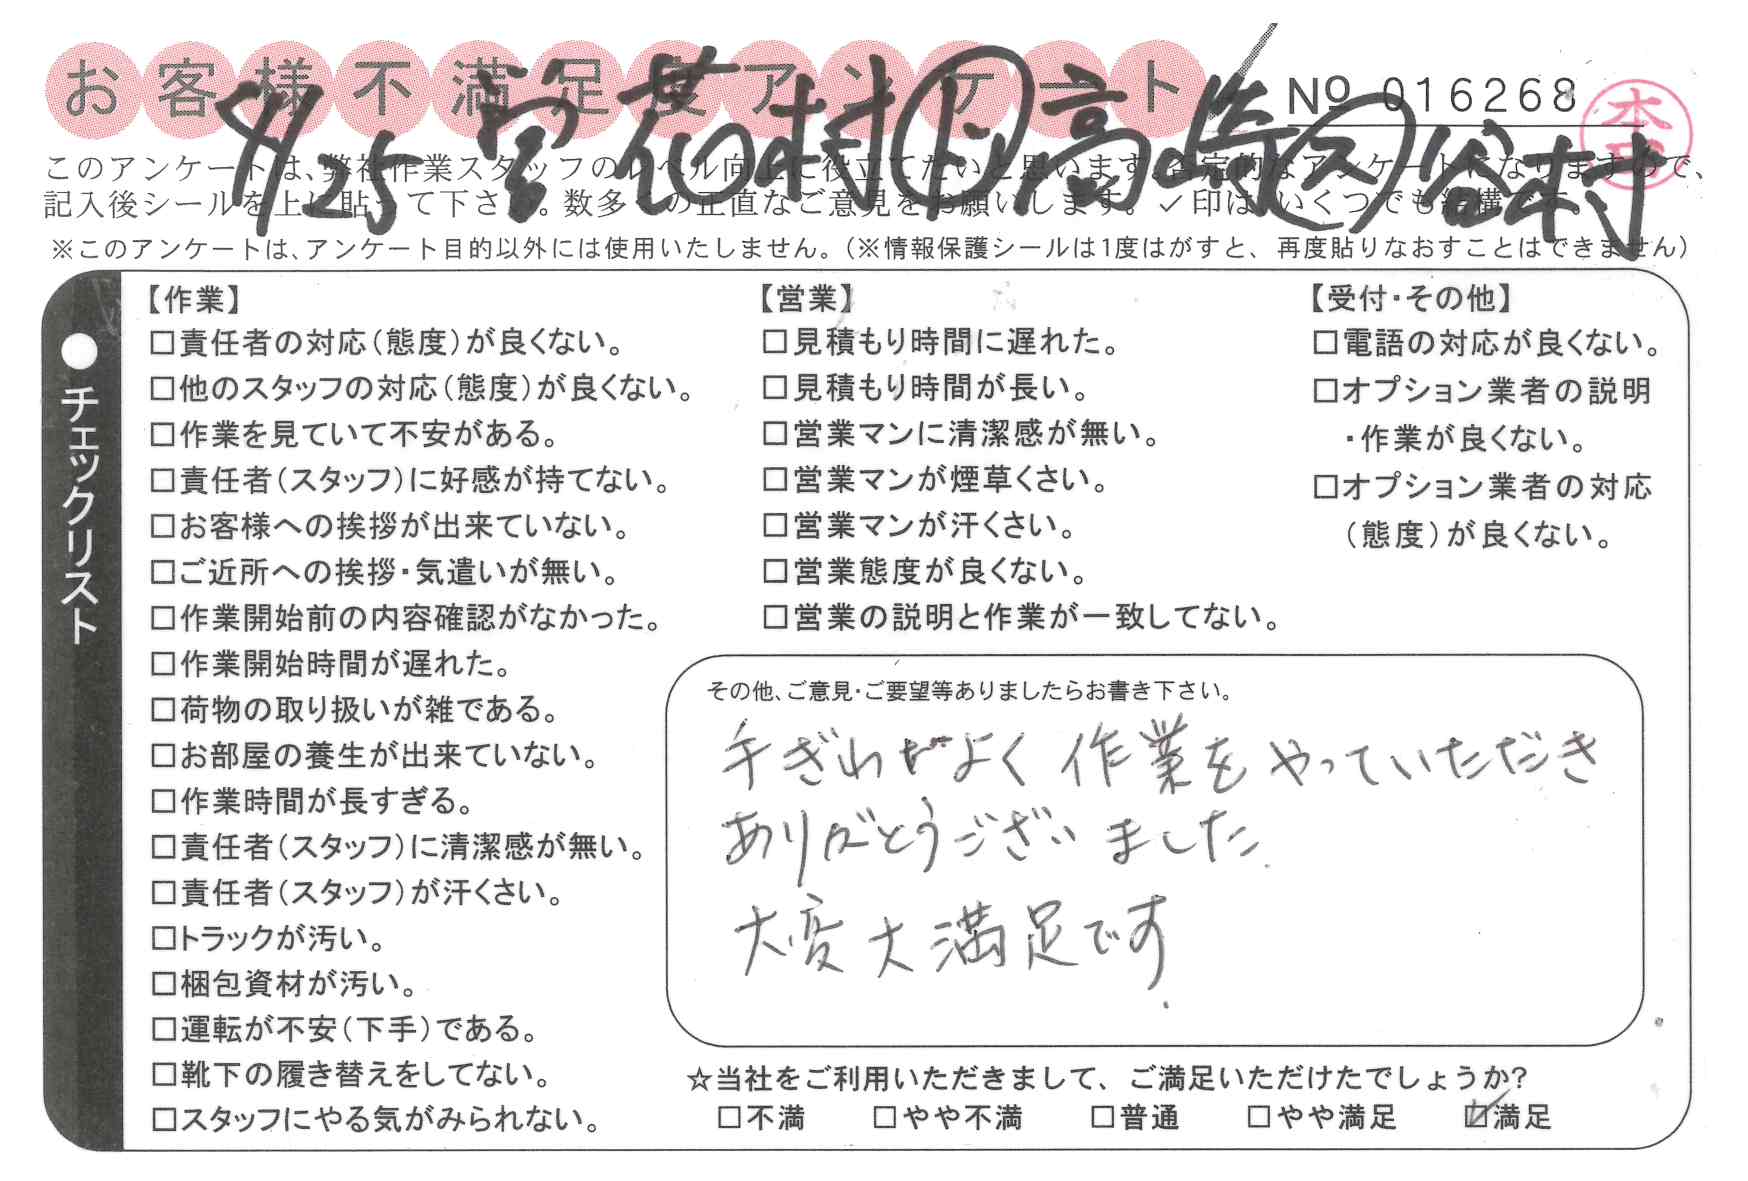 お客様不満足度アンケート
№ 016268
本田
8/25 営 花村 ㊊ 高崎 谷村
このアンケートは、弊社作業スタッフのレベル向上に役立てたいと思います。否定的なアンケートになりますので、
記入後シールを上に貼って下さい。数多くの正直なご意見をお願いします。✓印は、いくつでも結構です。
※このアンケートは、アンケート目的以外には使用いたしません。(※情報保護シールは1度はがすと、再度貼りなおすことはできません)
●チェックリスト
【作業】
□責任者の対応(態度)が良くない。
□他のスタッフの対応(態度)が良くない。
□作業を見ていて不安がある。
□責任者(スタッフ)に好感が持てない。
□お客様への挨拶が出来ていない。
□ご近所への挨拶・気遣いが無い。
□作業開始前の内容確認がなかった。
□作業開始時間が遅れた。
□荷物の取り扱いが雑である。
□お部屋の養生が出来ていない。
□作業時間が長すぎる。
□責任者(スタッフ)に清潔感が無い。
□責任者(スタッフ)が汗くさい。
□トラックが汚い。
□梱包資材が汚い。
□運転が不安(下手)である。
□靴下の履き替えをしてない。
□スタッフにやる気がみられない。
【営業】
□見積もり時間に遅れた。
□見積もり時間が長い。
□営業マンに清潔感が無い。
□営業マンが煙草くさい。
□営業マンが汗くさい。
□営業態度が良くない。
□営業の説明と作業が一致してない。
【受付・その他】
□電話の対応が良くない。
□オプション業者の説明
・作業が良くない。
□オプション業者の対応
(態度)が良くない。
その他、ご意見・ご要望等ありましたらお書き下さい。
手ぎわがよく作業をやっていただき
ありがとうございました。
大変大満足です.
☆当社をご利用いただきまして、ご満足いただけたでしょうか?
□不満 □やや不満 □普通 □やや満足 ☑満足